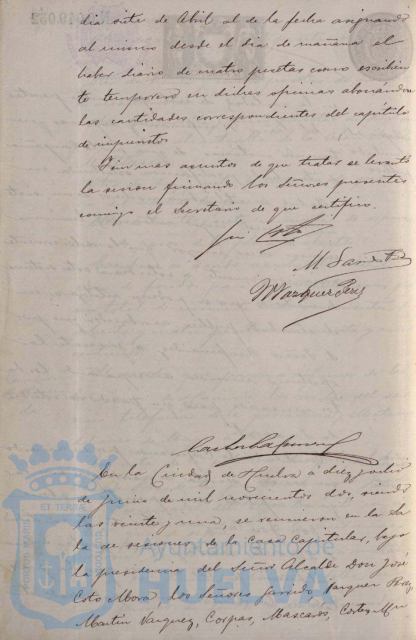 dia siete de Abril al de la fecha asignando
al mismo desde el dia de mañana el
haber diario de cuatro pesetas como escribien
te temporero en dichas oficinas abonandose
las cantidades correspondientes del capítulo
de imprevistos
Sin mas asuntos de que tratar se levantó
la sesion firmando los Señores presentes
conmigo el Secretario de que certifico.
Coto
M Vazquez Perez
En la Ciudad de Huelva a diez y ocho
de Junio de mil novecientos dos, siendo
las veinte y una, se reunieron en la Sa
la de sesiones de la Casa Capitular, bajo
la presidencia del Señor Alcalde Don José
Coto Mora, los Señores Garrido, Vazquez Perez
Martin Vazquez, Corpas, Mascarós, Cortes
Ayuntamiento de
HUELVA